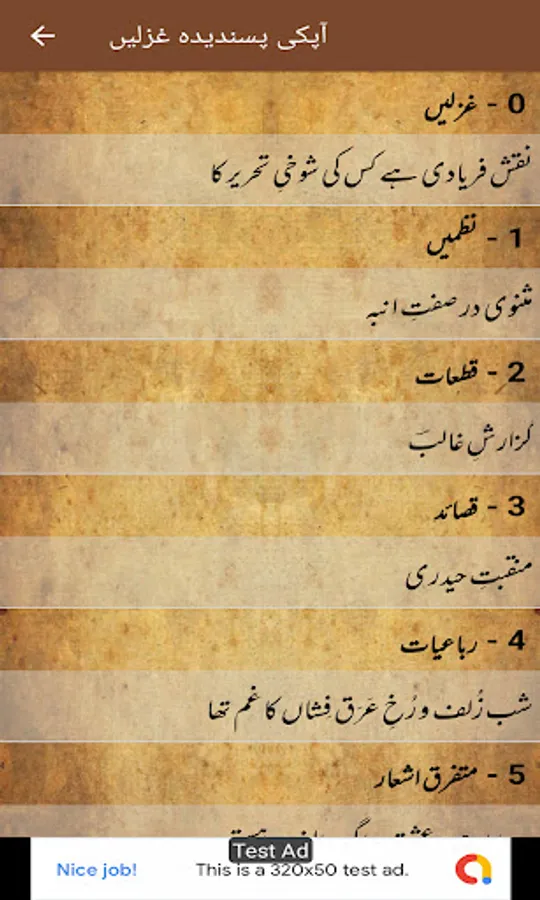 آپکی پسندیدہ غزلیں
0 - غزلیں
نقش فریادی ہے کس کی شوخیِ تحریر کا
1 - نظمیں
مثنوی در صفتِ انبہ
2 - قطعات
گزارشِ غالبؔ
3 - قصائد
منقبتِ حیدری
4 - رباعیات
شب زُلف و رُخِ عَرَق فِشاں کا غم تھا
5 - متفرق اشعار
Test Ad
Nice job! This is a 320x50 test ad.